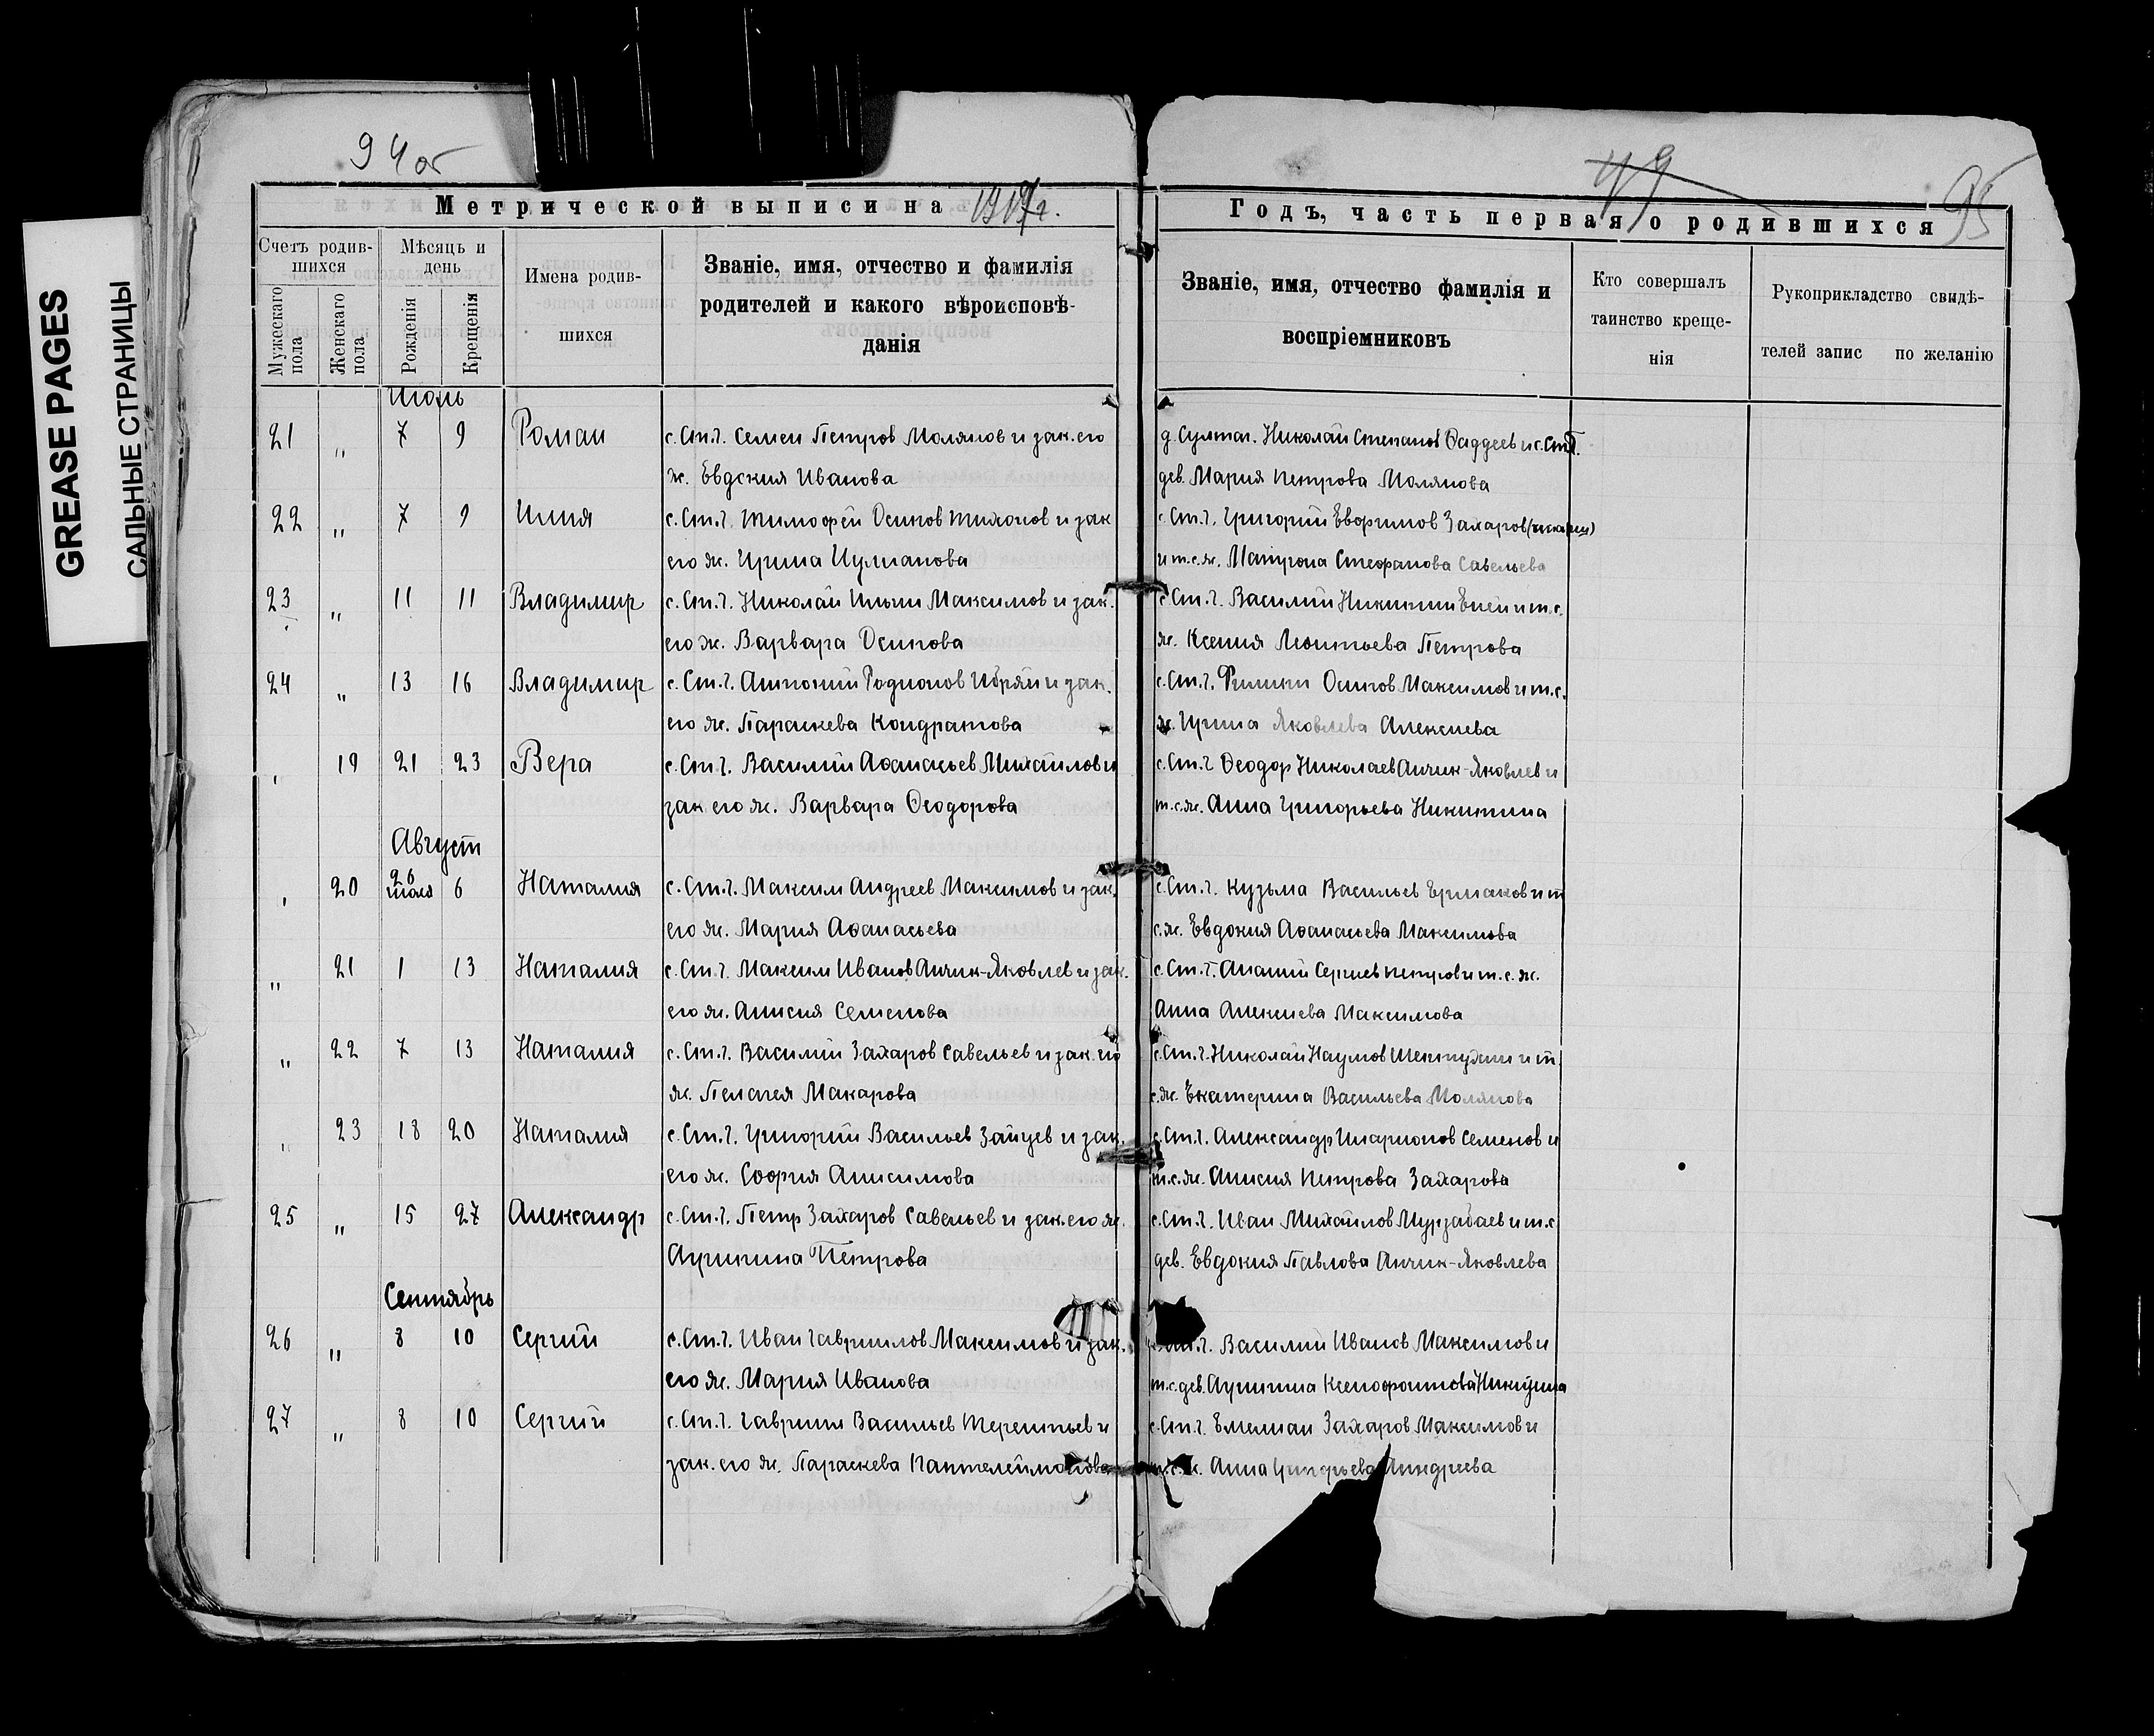 GREASE PAGES
САЛЬНЫЕ СТРАНИЦЫ
94об
Метрической выписи на 1919г.
Счетъ родив-
шихся
Мѣсяцъ и
день
Мужескаго
пола
Женскаго
пола
Рожденія
Крещенія
Имена родив-
шихся
Званіе, имя, отчество и фамилія
родителей и какого вѣроисповѣ-
данія
Июль
21 " 7 9 Роман с. Ст.Ч. Семен Петров Молянов и зак. его
ж. Евдокия Иванова
22 " 7 9 Илия с. Ст.Ч. Тимофей Осипов Тихонов и зак
его ж. Ирина Иулианова
23 " 11 11 Владимир с. Ст.Ч. Николай Ильин Максимов и зак.
его ж. Варвара Осипова
24 " 13 16 Владимир с. Ст.Ч. Антоний Родионов и зак.
его ж. Параскева Кондратова
" 19 21 23 Вера с. Ст.Ч. Василий Афанасьев Михайлов и
зак его ж. Варвара Феодорова
Август
" 20 26 июля 6 Наталия с. Ст.Ч. Максим Андреев Максимов и зак.
его ж. Мария Афанасьева
" 21 1 13 Наталия с. Ст.Ч. Максим Иванов Анчик-Яковлев и зак.
его ж. Анисия Семенова
" 22 7 13 Наталия с. Ст.Ч. Василий Захаров Савельев и зак. его
ж. Пелагея Макарова
" 23 18 20 Наталия с. Ст.Ч. Григорий Васильев Зайцев и зак.
его ж. София Анисимова
25 " 15 27 Александр с. Ст.Ч. Петр Захаров Савельев и зак. его ж.
Агрипина Петрова
Сентябрь
26 " 8 10 Сергий с. Ст.Ч. Иван Гавриилов Максимов и зак.
его ж. Мария Иванова
27 " 8 10 Сергий с. Ст.Ч. Гавриил Васильев Терентьев и
зак. его ж. Параскева Пантелеймонова
49
95
Годъ, часть первая о родившихся
Званіе, имя, отчество фамилія и
воспріемниковъ
Кто совершалъ
таинство креще-
нія
Рукоприкладство свидѣ-
телей запис по желанію
д. Султан. Николай Степанов Фаддеев и с. Ст.Ч.
дев. Мария Петрова Молянова
с. Ст.Ч. Григорий Евфимов Захаров
и т.с. ж. Матрона Стефанова Савельева
с. Ст.Ч. Василий Никитин и т.с.
ж. Ксения Леонтьева Петрова
с. Ст.Ч. Филипп Осипов Максимов и т.с.
ж. Ирина Яковлева Алексиева
с. Ст.Ч Феодор Николаев Анчик-Яковлев и
т.с. ж. Анна Григорьева Никитина
с. Ст.Ч. Кузьма Васильев Ермаков и т
с. ж. Евдокия Афанасьева Максимова
с. Ст.Ч. Ананий Сергиев Петров и т.с. ж.
Анна Алексиева Максимова
с. Ст.Ч. Николай Наумов и т.
с. ж. Екатерина Васильева Молянова
с. Ст.Ч. Александр Иларионов Семенов и
т.с. ж. Анисия Петрова Захарова
с. Ст.Ч. Иван Михайлов Мурзабаев и т.с
дев. Евдокия Павлова Анчик-Яковлева
Ст.Ч. Василий Иванов Максимов и
т.с. дев. Агрипина Ксенофонтова
с. Ст.Ч. Емелиан Захаров Максимов и
Анна Григорьева Андреева